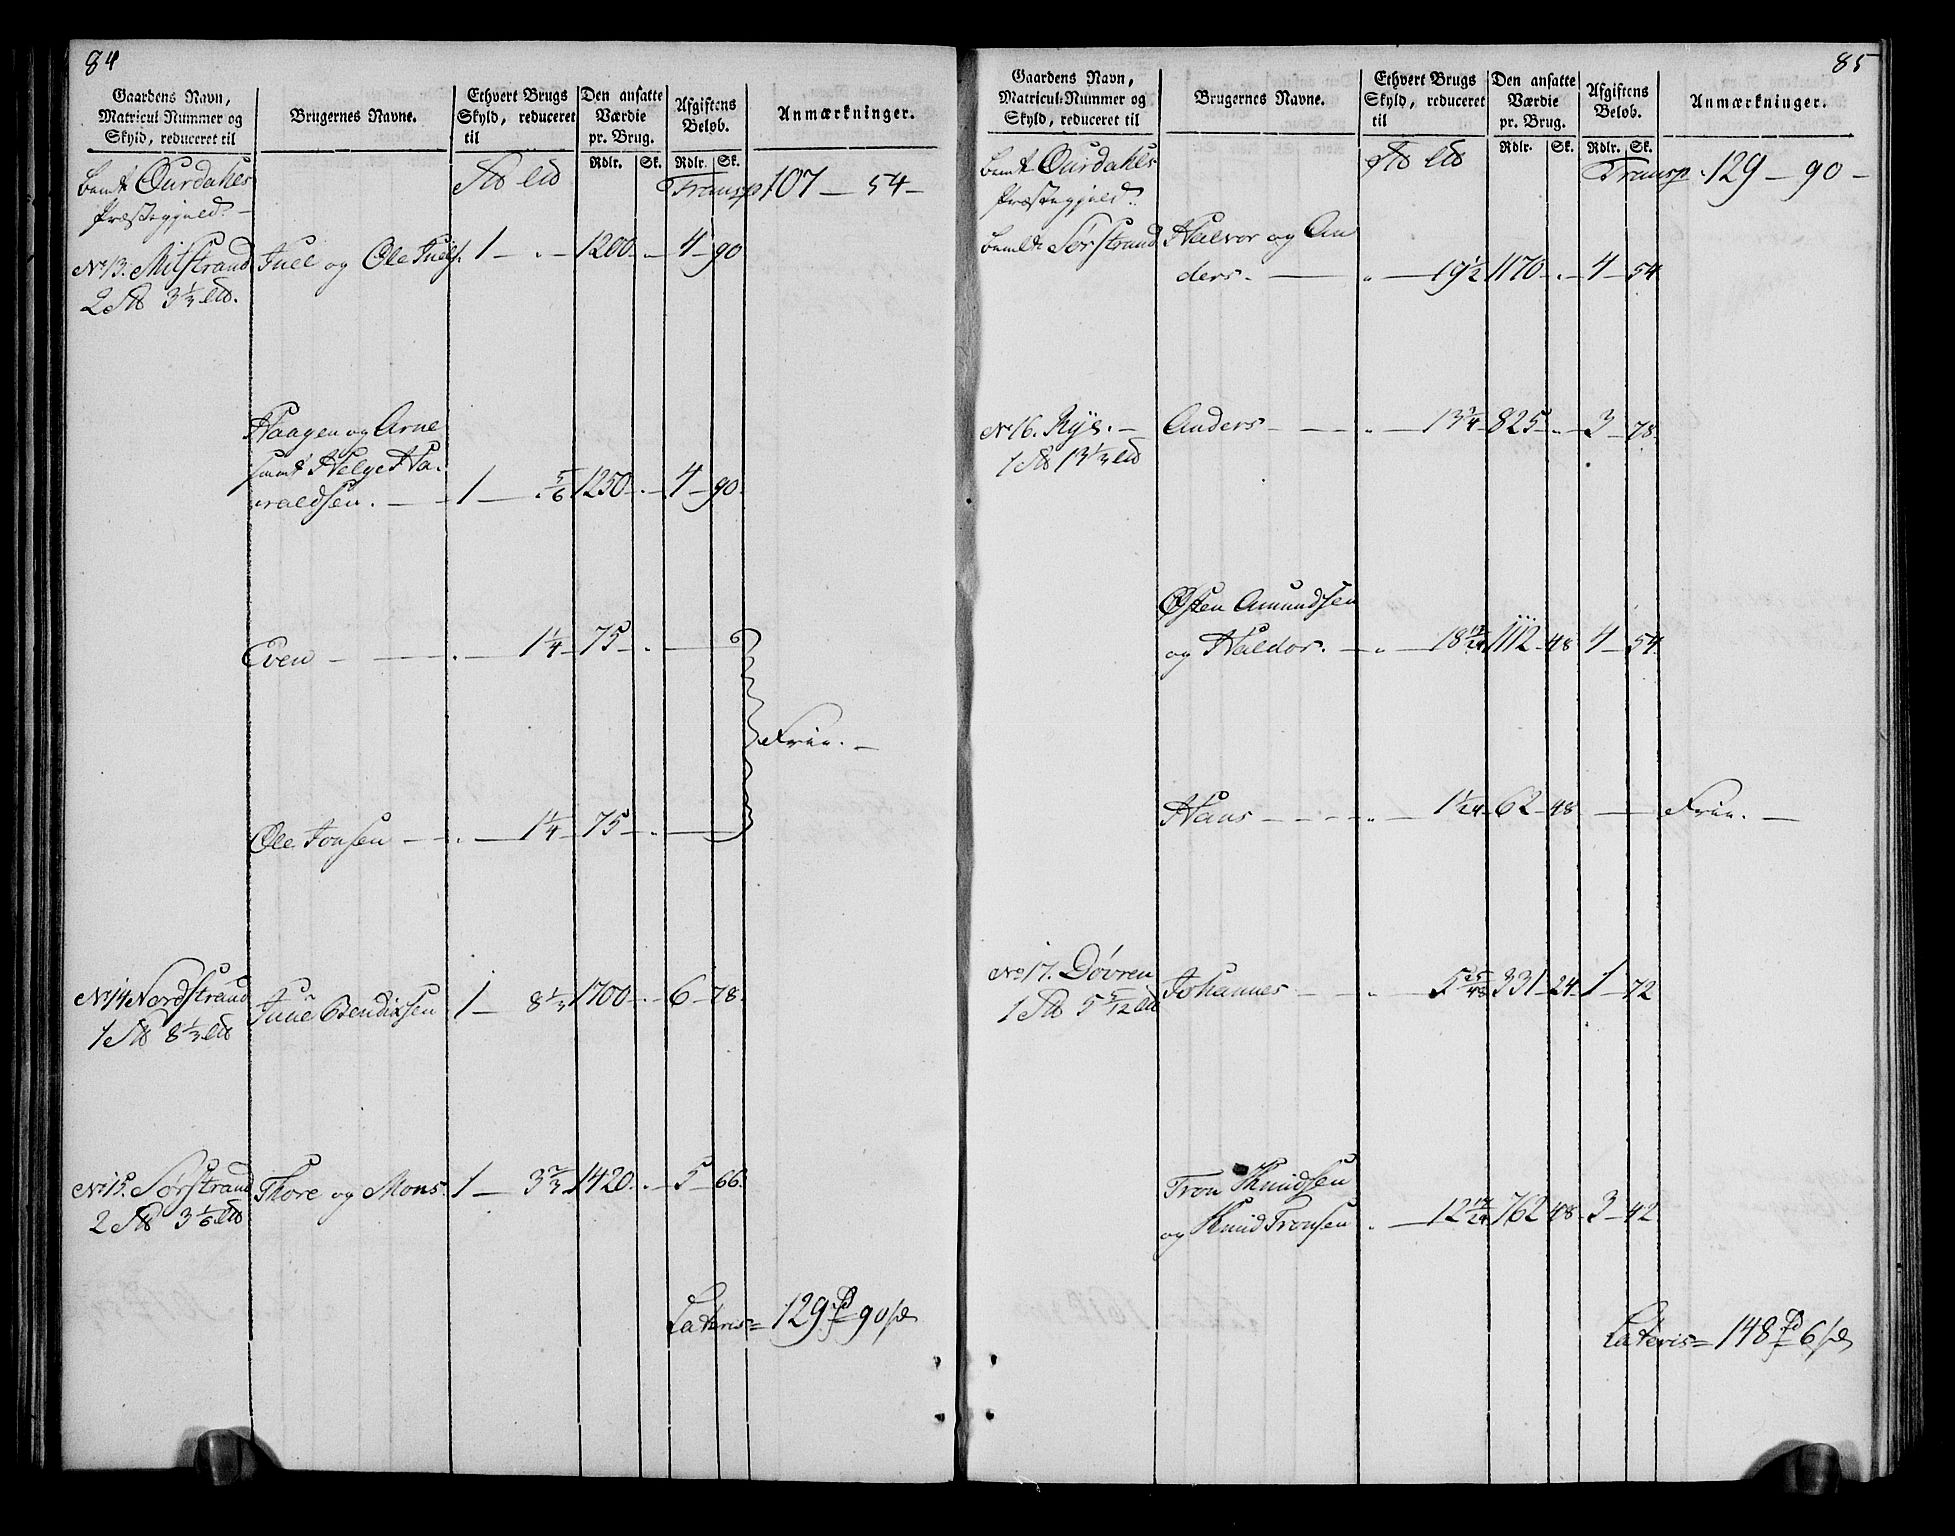 84
Gaardens Navn,
Matricul Nummer og
Skyld, reduceret til
Brugernes Navne.
Ethvert Brugs
Skyld, reduceret
til
Den ansatte
Værdie
pr. Brug.
Rdlr. Sk.
Afgiftens
Beløb.
Rdlr. Sk.
Anmærkninger.
bemt Ourdahls
Præstegjeld.
Transp 107 — 54 —
No 13. Midstrand Juel og Ole Juels. 1 — " — 1200 — " — 4 — 90
2 3 1/3
Haagen og Arne
samt Helge Ha-
raldsen. — 1 — 5/6 1250 — " — 4 — 90.
Even — — — " — 1 1/4 — 75 — " —
Frie. —
Ole Jonsen — — " — 1 1/4 — 75 — " —
No 14 Nordstrand Juul Bendixsen 1 — 8 1/3 1700 — " — 6 — 78.
1 8 1/3
No 15. Sørstrand Thore og Mons. 1 — 3 2/3 1420 — " — 5 — 66.
2 3 1/6
Lateris = 129 90
85
Gaardens Navn,
Matricul-Nummer og
Skyld, reduceret til
Brugernes Navne.
Ethvert Brugs
Skyld, reduceret
til
Den ansatte
Værdie
pr. Brug.
Rdlr. Sk.
Afgiftens
Beløb.
Rdlr. Sk.
Anmærkninger.
bemt Ourdahls
Præstegjeld.
Transp. 129 — 90 —
bemldt Sørstrand Halvor og An
ders. — " — 19 1/2 1170 — " — 4 — 54
No 16. Rye. — Anders — — — " — 13 3/4 825 — " — 3 — 78.
1 13 1/3
Østen Amundsen
og Haldor. — " — 18 13/24 1112 — 48 4 — 54
Hans — — — " — 1 1/24 62 — 48 — Frie. —
No 17. Døvren Johannes — — " — 5 25/48 331 — 24 1 — 72
1 5 5/12
Tron Knudsen
og Knud Tronsen " — 12 17/24 762 48 3 — 42
Lateris = 148 6